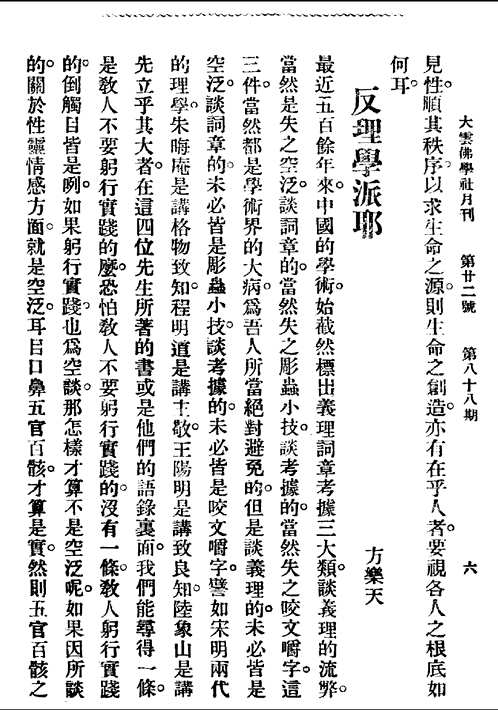 大雲佛學社月刊　第廿二號　第八十八期　六
見性。順其秩序。以求生命之源。則生命之創造。亦有在乎人者。要視各人之根底如
何耳。
反理學派耶
方樂天
最近五百餘年來。中國的學術。始截然標出義理詞章考據三大類。談義理的流弊。
當然是失之空泛。談詞章的。當然失之彫蟲小技。談考據的。當然失之咬文嚼字。這
三件當然都是學術界的大病。爲吾人所當絕對避免的。但是談義理的。未必皆是
空泛。談詞章的。未必皆是彫蟲小技。談考據的。未必皆是咬文嚼字。譬如宋明兩代
的理學。朱晦庵是講格物致知。程明道是講主敬。王陽明是講致良知。陸象山是講
先立乎其大者。在這四位先生所著的書或是他們的語錄裏面。我們能尋得一條。
是敎人不要躬行實踐的麼。恐怕敎人不要躬行實踐的。沒有一條。敎人躬行實踐
的。倒觸目皆是咧。如果躬行實踐。也爲空談。那怎樣才算不是空泛呢。如果因所談
的。關於性靈情感方面。就是空泛。耳目口鼻五官百骸。才算是實。然則五官百骸之